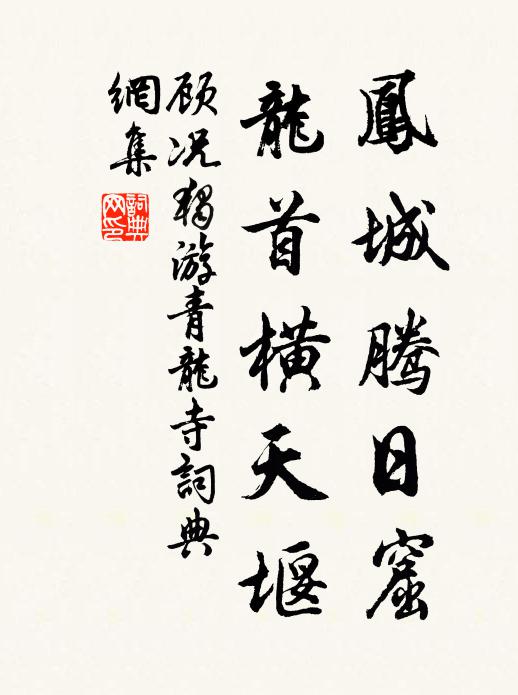 鳳城騰日窟
龍首橫天堰
顧况獨游青龍寺詞典
網集
詞典网印